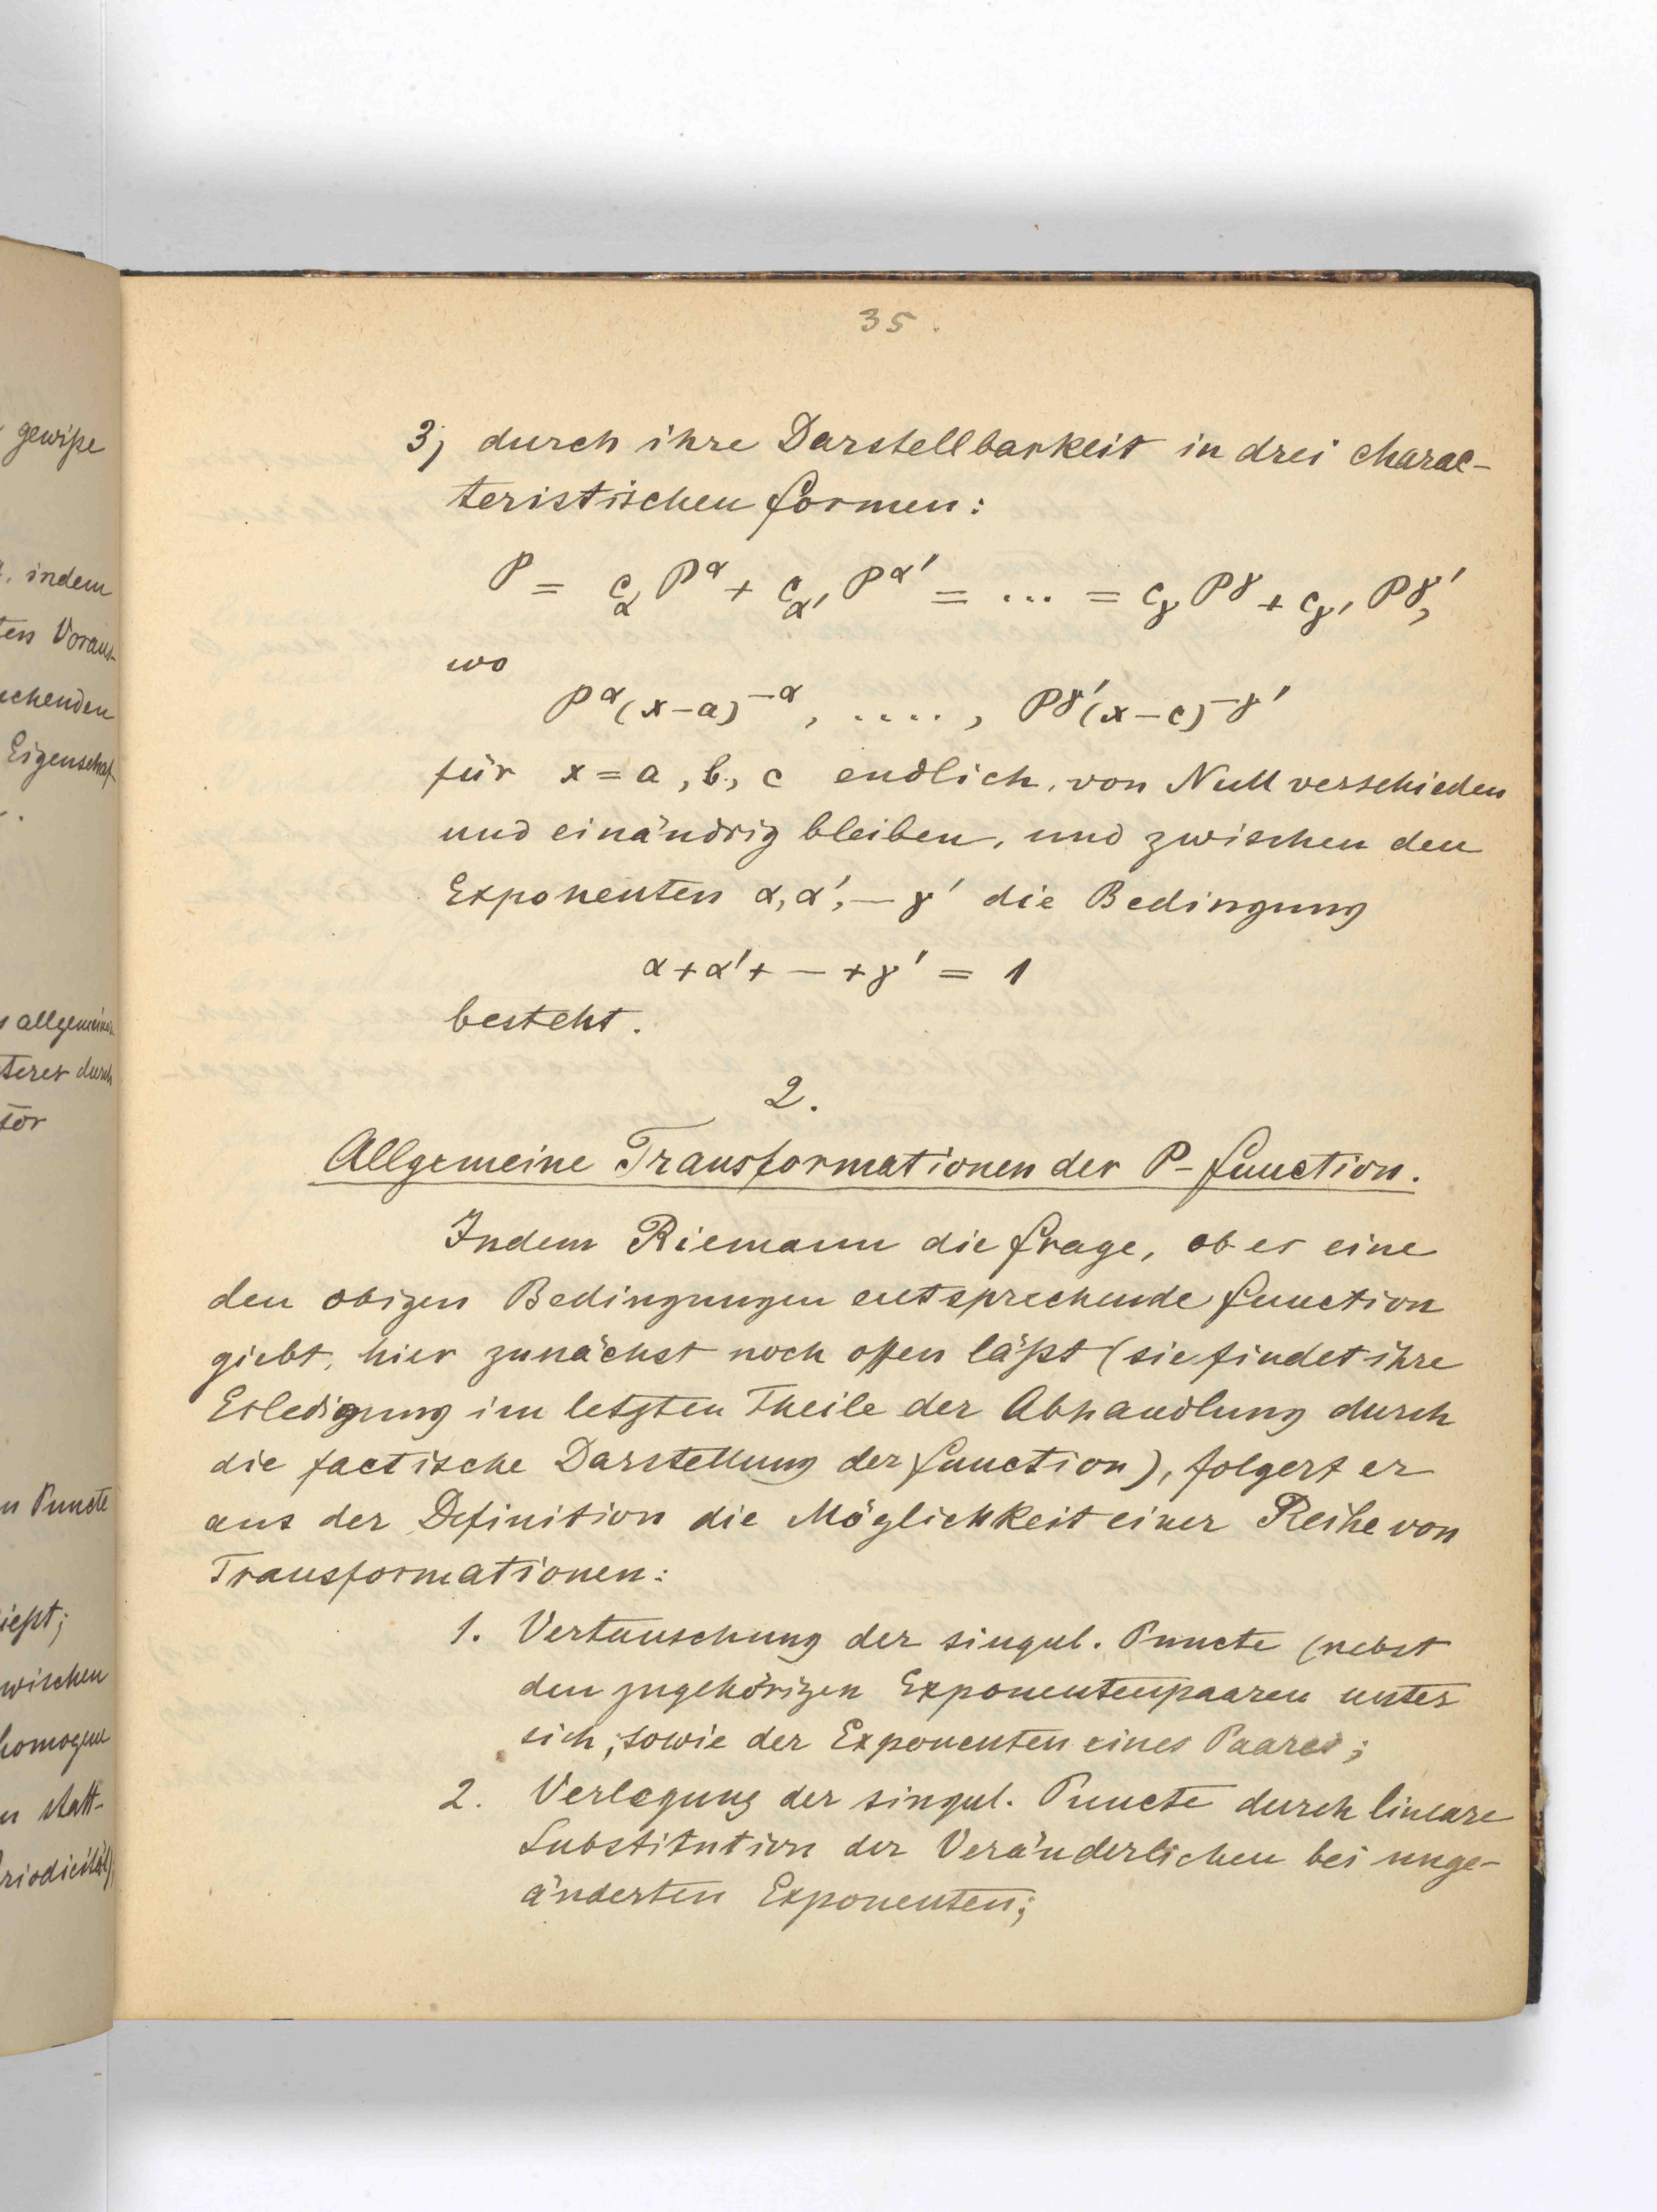 gewiße
indem
ten Voraus-
chenden
Eigenschaf-
allgemeinen
terer durch
tor
Puncte
ießt;
wischen
homogene
statt-
riodicität);
35.
3) durch ihre Darstellbarkeit in drei charac-
teristischen Formen:
P = c_α P^α + c_α' P^α' = ... = c_γ P^γ + c_γ' P^γ',
wo
P^α (x-a)^-α, ...., P^γ' (x-c)^-γ'
für x = a, b, c endlich, von Null verschieden
und einändrig bleiben, und zwischen den
Exponenten α, α', — γ' die Bedingung
α + α' + — + γ' = 1
besteht.
2.
Allgemeine Transformationen der P-Function.
Indem Riemann die Frage, ob es eine
den obigen Bedingungen entsprechende Function
giebt, hier zunächst noch offen läßt (sie findet ihre
Erledigung im letzten Theile der Abhandlung durch
die factische Darstellung der Function), folgert er
aus der Definition die Möglichkeit einer Reihe von
Transformationen:
1. Vertauschung der singul. Puncte (nebst
den zugehörigen Exponentenpaaren unter
sich, sowie der Exponenten eines Paares;
2. Verlegung der singul. Puncte durch lineare
Substitution der Veränderlichen bei unge-
änderten Exponenten;